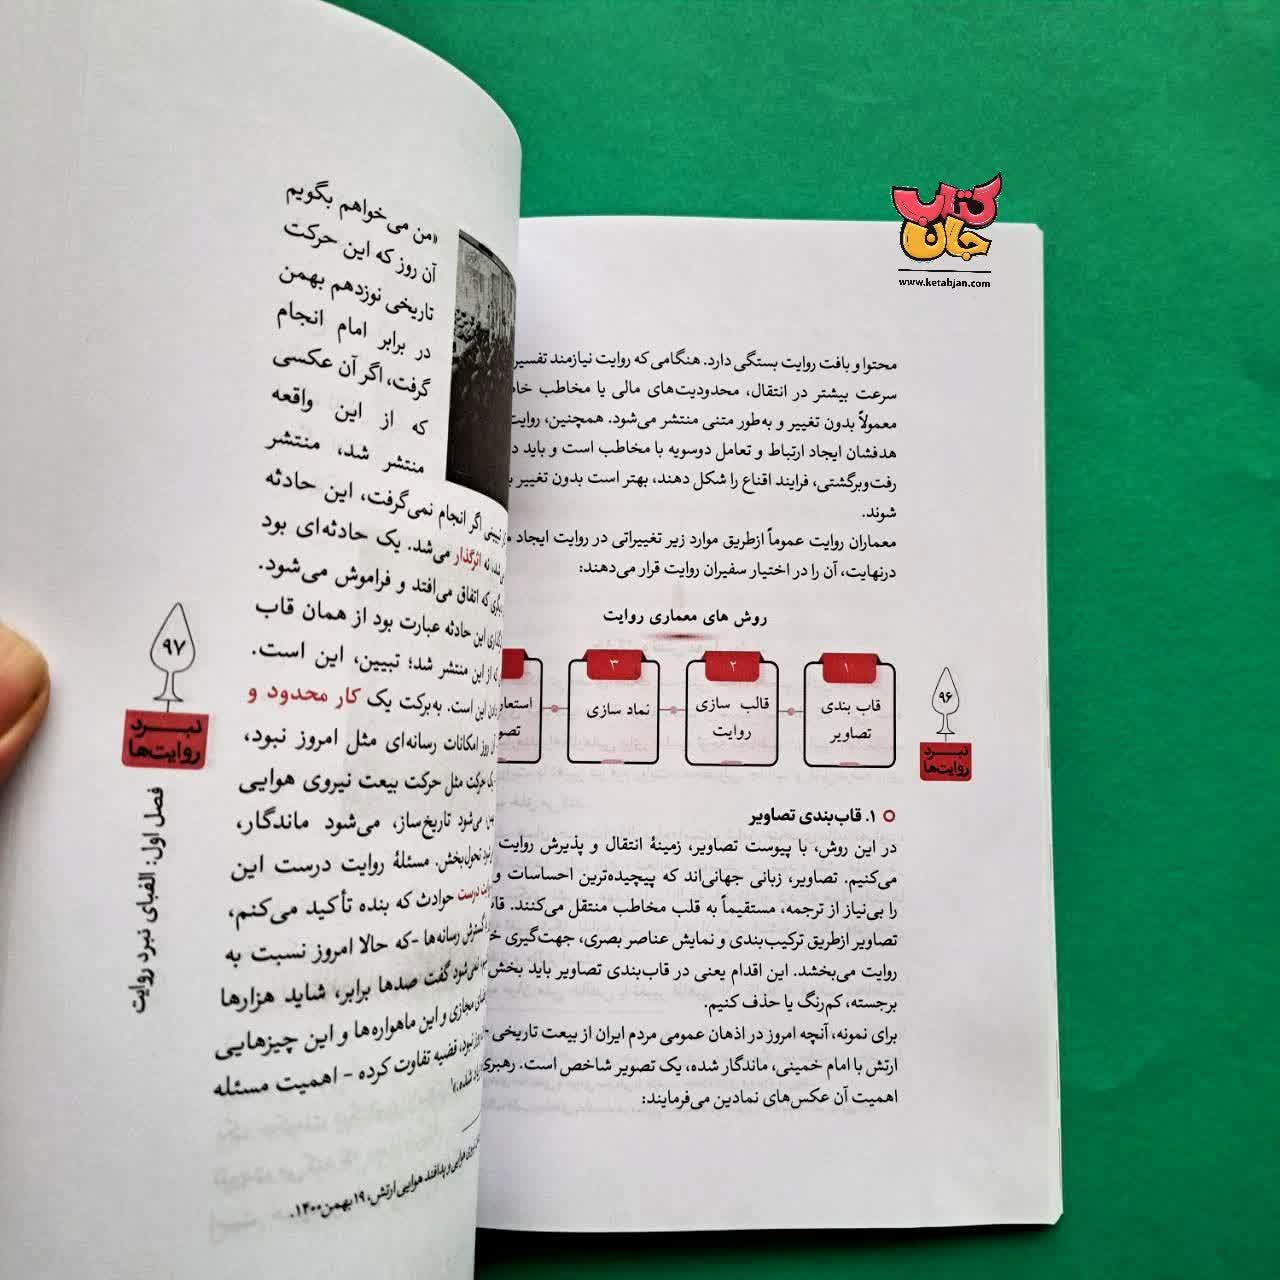 کتاب
جان
www.ketabjan.com
محتوا و بافت روایت بستگی دارد. هنگامی که روایت نیازمند تفسیر
سرعت بیشتر در انتقال، محدودیت‌های مالی یا مخاطب
معمولاً بدون تغییر و به‌طور متنی منتشر می‌شود. همچنین، روایت
هدفشان ایجاد ارتباط و تعامل دوسویه با مخاطب است و باید
رفت‌وبرگشتی، فرایند اقناع را شکل دهند، بهتر است بدون تغییر
شوند.
معماران روایت عموماً ازطریق موارد زیر تغییراتی در روایت ایجاد
درنهایت، آن را در اختیار سفیران روایت قرار می‌دهند:
روش های معماری روایت
۱
قاب بندی
تصاویر
۲
قالب سازی
روایت
۳
نماد سازی
۹۶
نبرد
روایت‌ها
۱. قاب‌بندی تصاویر
در این روش، با پیوست تصاویر، زمینهٔ انتقال و پذیرش روایت
می‌کنیم. تصاویر، زبانی جهانی‌اند که پیچیده‌ترین احساسات و
را بی‌نیاز از ترجمه، مستقیماً به قلب مخاطب منتقل می‌کنند.
تصاویر ازطریق ترکیب‌بندی و نمایش عناصر بصری، جهت‌گیری
روایت می‌بخشد. این اقدام یعنی در قاب‌بندی تصاویر باید بخش
برجسته، کم‌رنگ یا حذف کنیم.
برای نمونه، آنچه امروز در اذهان عمومی مردم ایران از بیعت تاریخی
ارتش با امام خمینی، ماندگار شده، یک تصویر شاخص است. رهبری
اهمیت آن عکس‌های نمادین می‌فرمایند:
«من می‌خواهم بگویم
آن روز که این حرکت
تاریخی نوزدهم بهمن
در برابر امام انجام
گرفت، اگر آن عکسی
که از این واقعه
منتشر شد، منتشر
تبیینی اگر انجام نمی‌گرفت، این حادثه
نه اثرگذار می‌شد. یک حادثه‌ای بود
که اتفاق می‌افتد و فراموش می‌شود.
این حادثه عبارت بود از همان قاب
که از این منتشر شد؛ تبیین، این است.
این است. به‌برکت یک کار محدود و
روز امکانات رسانه‌ای مثل امروز نبود،
حرکت مثل حرکت بیعت نیروی هوایی
می‌شود تاریخ‌ساز، می‌شود ماندگار،
تحول‌بخش. مسئلهٔ روایت درست این
درست حوادث که بنده تأکید می‌کنم،
گسترش رسانه‌ها -که حالا امروز نسبت به
نمی‌شود گفت صدها برابر، شاید هزارها
مجازی و این ماهواره‌ها و این چیزهایی
نبود، قضیه تفاوت کرده - اهمیت مسئله
شده.»۱
هوایی و پدافند هوایی ارتش، ۱۹ بهمن ۱۴۰۰.
۹۷
نبرد
روایت‌ها
فصل اول: الفبای نبرد روایت